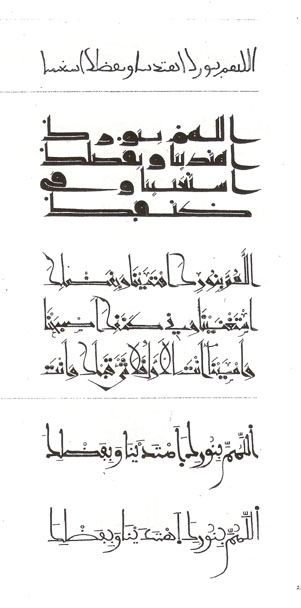 اللهم بنورك اهتدينا وبفضلك استغنينا
اللهم بنورك
اهتدينا وبفضلك
استغنينا وفي
كنفك
اللَّهُمَّ بِنُورِكَ اهْتَدَيْنَا وَبِفَضْلِكَ
اسْتَغْنَيْنَا وَفِي كَنَفِكَ أَصْبَحْنَا
وَأَمْسَيْنَا أَنْتَ الأَوَّلُ فَلَا شَيْءَ قَبْلَكَ وَأَنْتَ
اَللَّهُمَّ بِنُورِكَ اهْتَدَيْنَا وَبِفَضْلِكَ
اَللَّهُمَّ بِنُورِكَ اهْتَدَيْنَا وَبِفَضْلِكَ